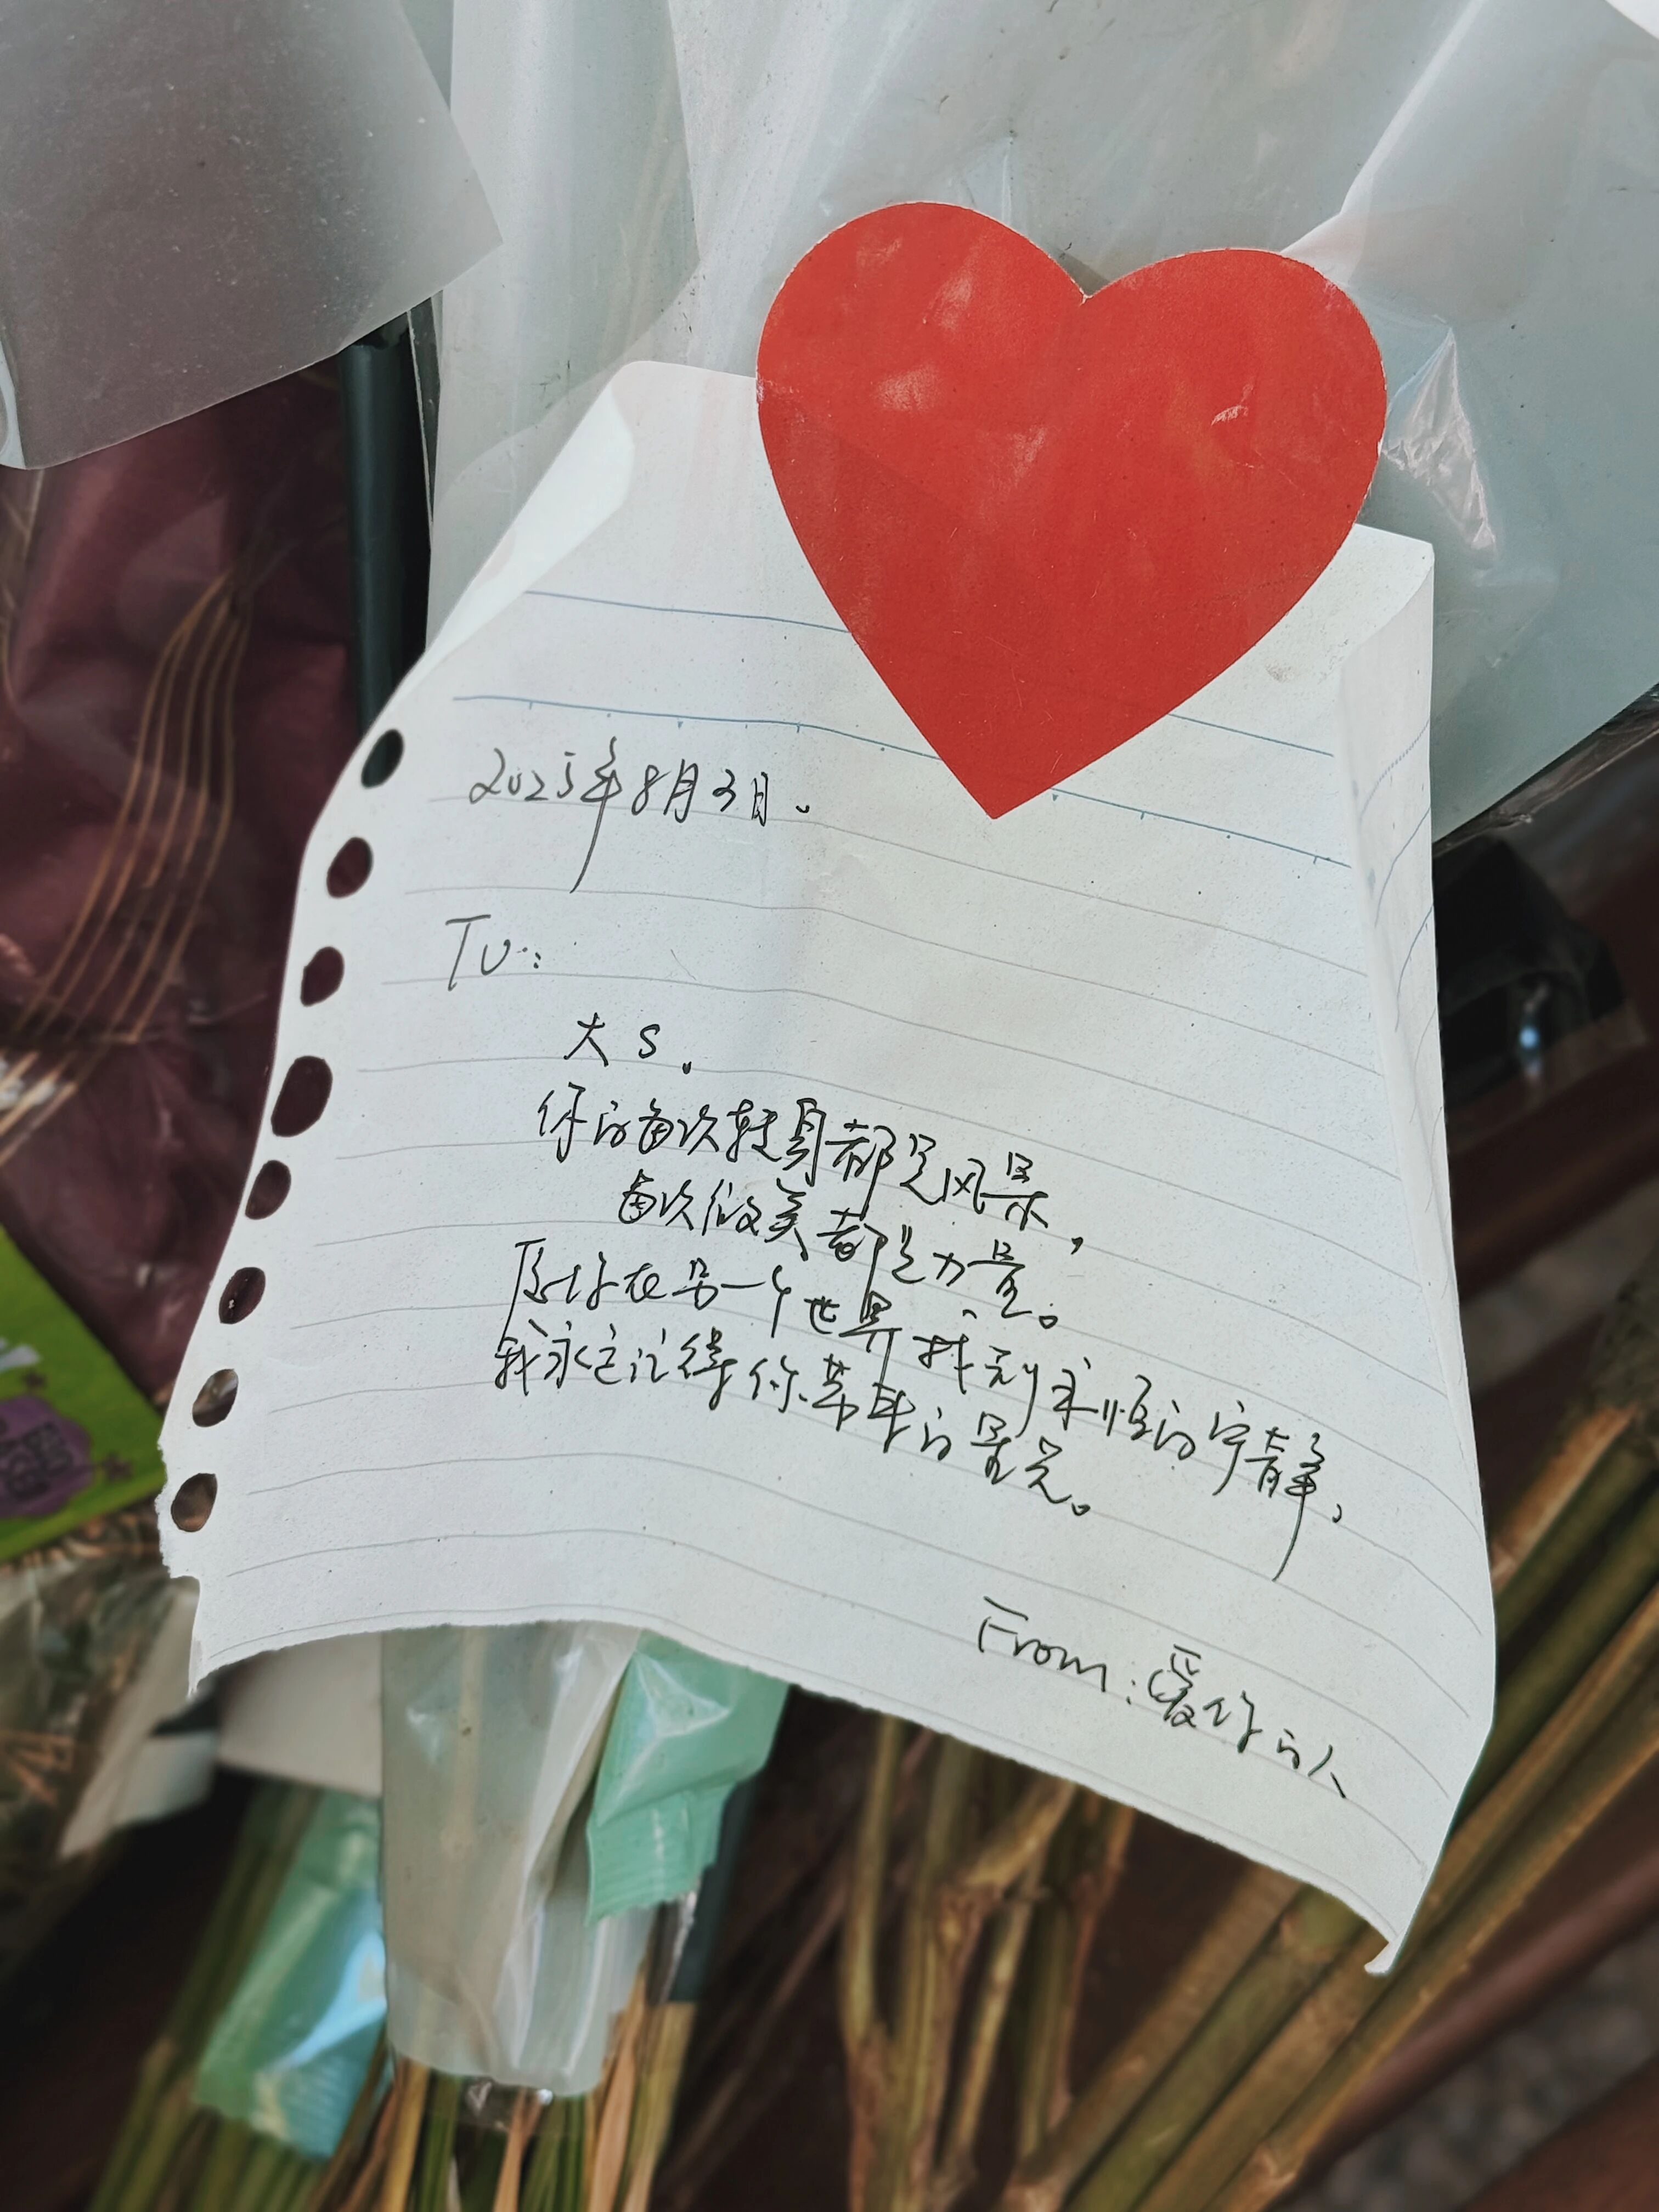 2025年8月3日。
To:
大S。
你的每次转身都是风景，
每次微笑都是力量。
愿你在另一个世界找到永恒的宁静，
我永远记得你带来的星光。
From:爱你的人